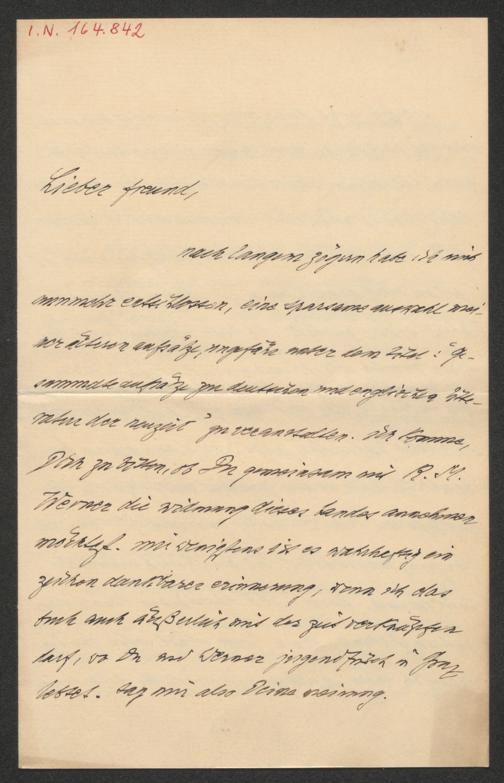 I.N. 164.842
Lieber freund,
nach langem zögern habe ich mich
nunmehr entschlossen, eine sparsame auswahl mei-
ner älteren aufsätze, ungefähr unter dem titel: "Ge-
sammelte aufsätze zur deutschen und englischen lite-
ratur der neuzeit" zu veranstalten. Ich komme,
Dich zu bitten, ob Du gemeinsam mit R. M.
Werner die widmung dieses bandes annehmen
möchtest. mir wenigstens ist es wahrhaftig ein
zeichen dankbarer erinnerung, wenn ich das
buch auch äußerlich mit der zeit verknüpfen
darf, wo Du und Werner jugendfrisch in Graz
lebtet. sag mir also Deine meinung.